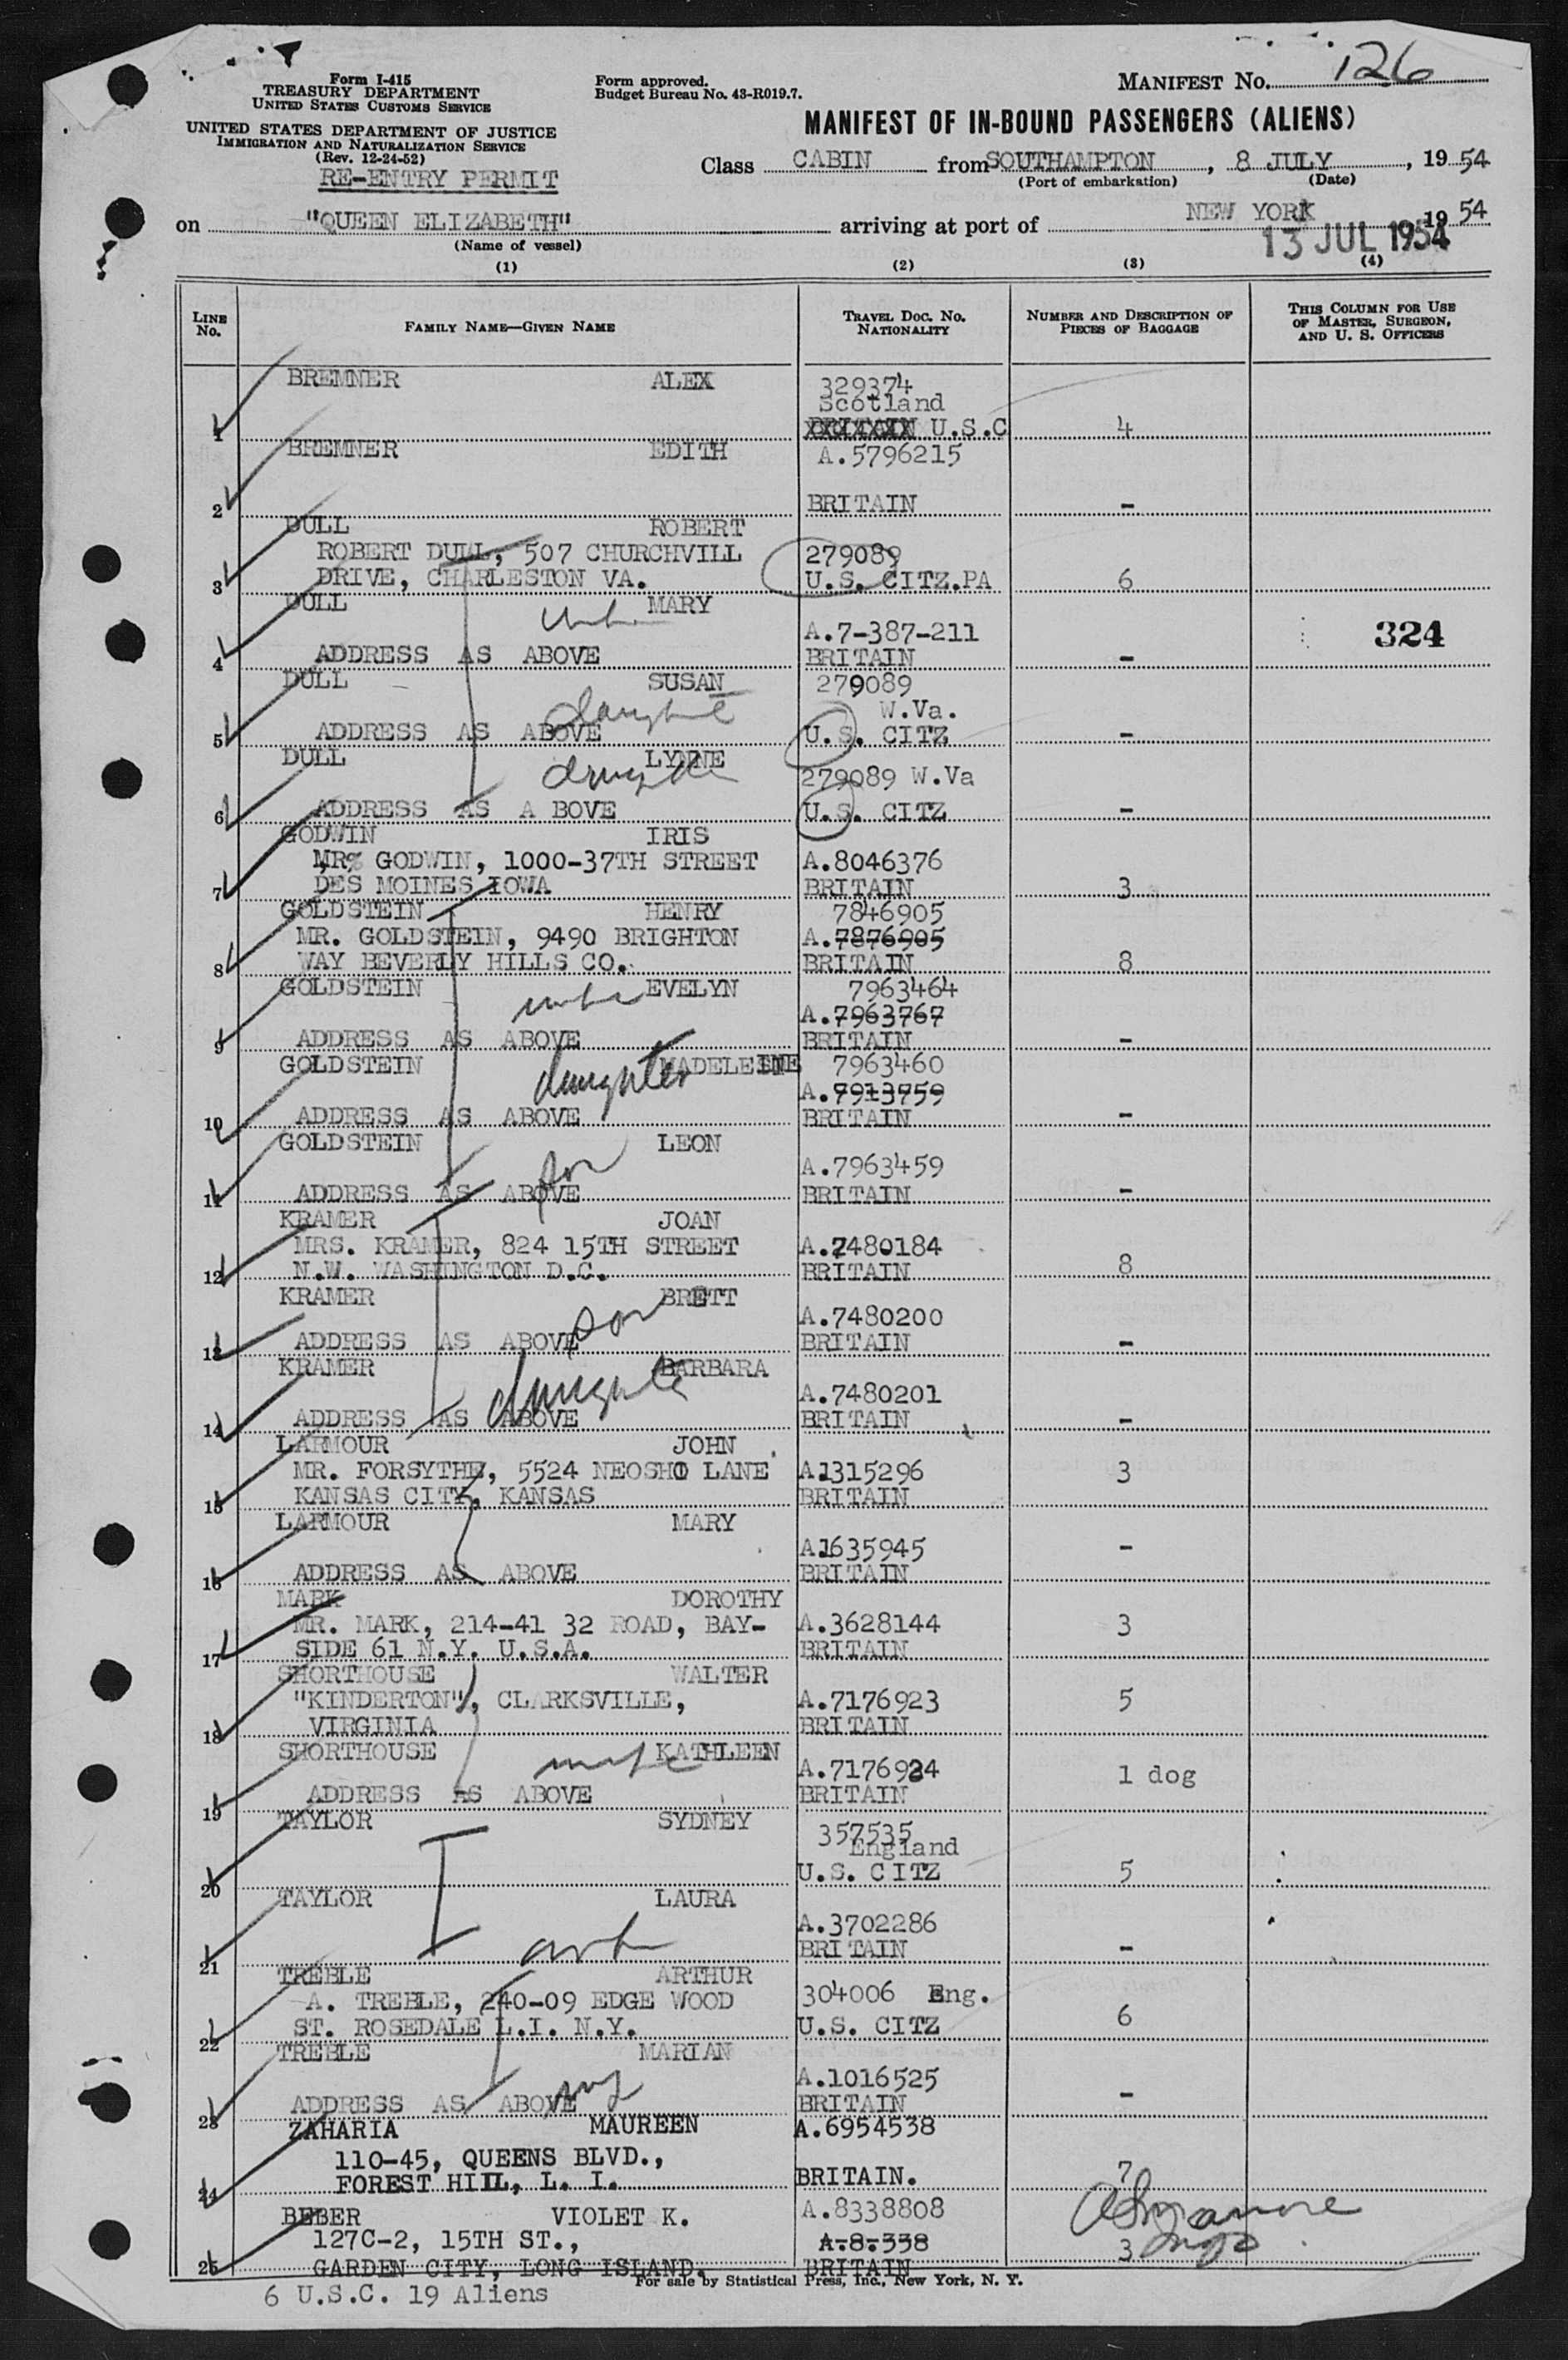 Form I-415
TREASURY DEPARTMENT
UNITED STATES CUSTOMS SERVICE
UNITED STATES DEPARTMENT OF JUSTICE
IMMIGRATION AND NATURALIZATION SERVICE
(Rev. 12-24-52)
RE-ENTRY PERMIT
Form approved.
Budget Bureau No. 43-R019.7.
MANIFEST No. 126
MANIFEST OF IN-BOUND PASSENGERS (ALIENS)
Class CABIN from SOUTHAMPTON, 8 JULY, 19 54
(Port of embarkation) (Date)
on "QUEEN ELIZABETH" arriving at port of NEW YORK 19 54
(Name of vessel) 13 JUL 1954
(1) (2) (3) (4)
LINE No. FAMILY NAME—GIVEN NAME TRAVEL DOC. NO. NATIONALITY NUMBER AND DESCRIPTION OF PIECES OF BAGGAGE THIS COLUMN FOR USE OF MASTER, SURGEON, AND U. S. OFFICERS
BREMNER ALEX 329374
Scotland
1 BRITAIN U.S.C 4
BREMNER EDITH A.5796215
2 BRITAIN -
DULL ROBERT
ROBERT DULL, 507 CHURCHVILL 279089
3 DRIVE, CHARLESTON VA. U.S. CITZ.PA 6
DULL MARY
A.7-387-211 324
4 ADDRESS AS ABOVE BRITAIN -
DULL SUSAN 279089
daughter W.Va.
5 ADDRESS AS ABOVE U.S. CITZ -
DULL LYNNE
daughter 279089 W.Va
6 ADDRESS AS A BOVE U.S. CITZ -
GODWIN IRIS
MRS GODWIN, 1000-37TH STREET A.8046376
7 DES MOINES IOWA BRITAIN 3
GOLDSTEIN HENRY 7846905
MR. GOLDSTEIN, 9490 BRIGHTON A.7876905
8 WAY BEVERLY HILLS CO. BRITAIN 8
GOLDSTEIN wife EVELYN 7963464
A.7963767
9 ADDRESS AS ABOVE BRITAIN -
GOLDSTEIN daughter MADELEINE 7963460
A.7913759
10 ADDRESS AS ABOVE BRITAIN -
GOLDSTEIN LEON
son A.7963459
11 ADDRESS AS ABOVE BRITAIN -
KRAMER JOAN
MRS. KRAMER, 824 15TH STREET A.7480184
12 N.W. WASHINGTON D.C. BRITAIN 8
KRAMER BRETT
son A.7480200
13 ADDRESS AS ABOVE BRITAIN -
KRAMER BARBARA
daughter A.7480201
14 ADDRESS AS ABOVE BRITAIN -
LARMOUR JOHN
MR. FORSYTHE, 5524 NEOSHO LANE A1315296 3
15 KANSAS CITY, KANSAS BRITAIN
LARMOUR MARY
A1635945 -
16 ADDRESS AS ABOVE BRITAIN
MARK DOROTHY
MR. MARK, 214-41 32 ROAD, BAY- A.3628144 3
17 SIDE 61 N.Y. U.S.A. BRITAIN
SHORTHOUSE WALTER
"KINDERTON", CLARKSVILLE, A.7176923 5
18 VIRGINIA BRITAIN
SHORTHOUSE wife KATHLEEN
A.7176924 1 dog
19 ADDRESS AS ABOVE BRITAIN
TAYLOR SYDNEY 357535
England
20 U.S. CITZ 5
TAYLOR LAURA
A.3702286
21 wife BRITAIN -
TREBLE ARTHUR
A. TREBLE, 240-09 EDGE WOOD 304006 Eng.
22 ST. ROSEDALE L.I. N.Y. U.S. CITZ 6
TREBLE MARIAN
A.1016525
23 ADDRESS AS ABOVE BRITAIN -
ZAHARIA MAUREEN A.6954538
110-45, QUEENS BLVD.,
24 FOREST HILL, L. I. BRITAIN. 7
BEBER VIOLET K. A.8338808
127C-2, 15TH ST., A.8.338
25 GARDEN CITY, LONG ISLAND. BRITAIN 3
For sale by Statistical Press, Inc., New York, N. Y.
6 U.S.C. 19 Aliens